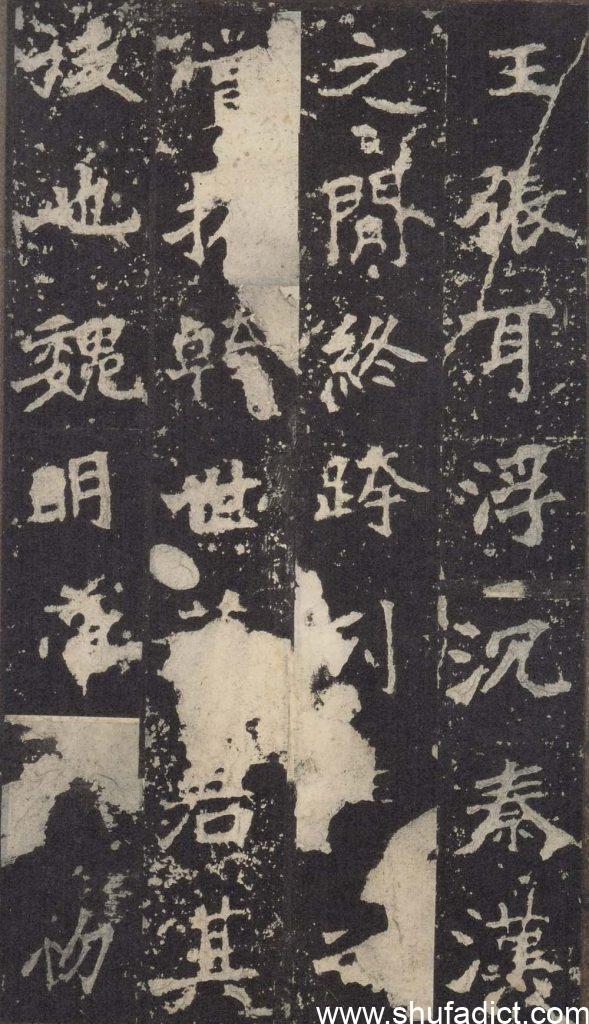 王張耳浮沉秦漢
之間終跨列之
世君其
後也魏明帝初
www.shufadict.com